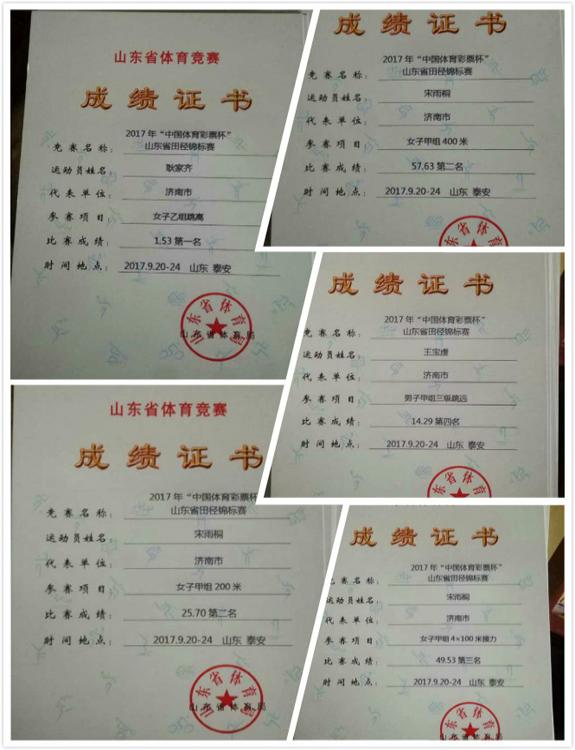 山东省体育竞赛
成绩证书
2017年“中国体育彩票杯”
竞赛名称： 山东省田径锦标赛
运动员姓名： 耿家齐
代表单位： 济南市
参赛项目： 女子乙组跳高
比赛成绩： 1.53 第一名
时间地点： 2017.9.20-24 山东 泰安
山东省体育局
山东省体育局
成绩证书
2017年“中国体育彩票杯”
竞赛名称： 山东省田径锦标赛
运动员姓名： 宋雨桐
代表单位： 济南市
参赛项目： 女子甲组400米
比赛成绩： 57.63 第二名
时间地点： 2017.9.20-24 山东 泰安
山东省体育局
成绩证书
2017年“中国体育彩票杯”
竞赛名称： 山东省田径锦标赛
运动员姓名： 王宝虔
代表单位： 济南市
参赛项目： 男子甲组三级跳远
比赛成绩： 14.29 第四名
时间地点： 2017.9.20-24 山东 泰安
省体
山东省体育竞赛
成绩证书
2017年“中国体育彩票杯”
竞赛名称： 山东省田径锦标赛
运动员姓名： 宋雨桐
代表单位： 济南市
参赛项目： 女子甲组200米
比赛成绩： 25.70 第二名
时间地点： 2017.9.20-24 山东 泰安
山东省体育局
山东省体育局
成绩证书
2017年“中国体育彩票杯”
竞赛名称： 山东省田径锦标赛
运动员姓名： 宋雨桐
代表单位： 济南市
参赛项目： 女子甲组4×100米接力
比赛成绩： 49.53 第三名
时间地点： 2017.9.20-24 山东 泰安
东省体育